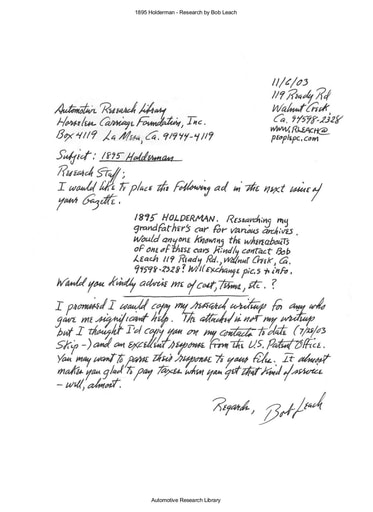 1895 Holderman - Research by Bob Leach
11/6/03
119 Ready Rd
Walnut Creek
Ca. 94598-2328
WWW, RLEACH@
peoplepc.com
Automotive Research Library
Horseless Carriage Foundation, Inc.
Box 4119 La Mesa, Ca. 91944-4119
Subject: 1895 Holderman
Research Staff;
I would like to place the following ad in the next issue of
your Gazette.
1895 HOLDERMAN. Researching my
grandfather's car for various archives.
Would anyone knowing the whereabouts
of one of these cars kindly contact Bob
Leach 119 Ready Rd., Walnut Creek, Ca.
94598-2328? Will exchange pics & info.
Would you kindly advise me of cost, terms, etc. ?
I promised I would copy my research writeup for any who
gave me significant help. The attached is not my writeup
but I thought I'd copy you on my contacts to date (7/28/03
Skip-) and an excellent response from the U.S. Patent Office.
You may want to parse their response to your files. It almost
makes you glad to pay taxes when you get that kind of service
- well, almost.
Regards, Bob Leach
Automotive Research Library